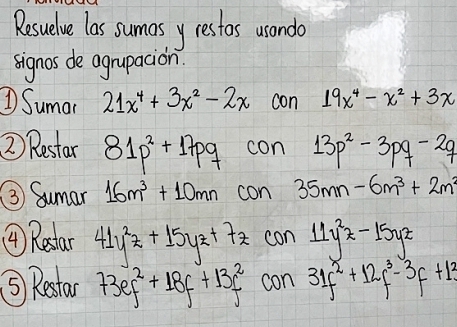 Resuelve las sumas y restas usando
signos de agrupación.
① Sumar 21x⁴ + 3x² - 2x con 19x⁴ - x² + 3x
② Restar 81p² + 17pq con 13p² - 3pq - 2q
③ Sumar 16m³ + 10mn con 35mn - 6m³ + 2m²
④ Restar 41y²z + 15yz + 7z con 11y²z - 15yz
⑤ Restar 73ef² + 18f + 13f² con 31f² + 12f³ - 3f +